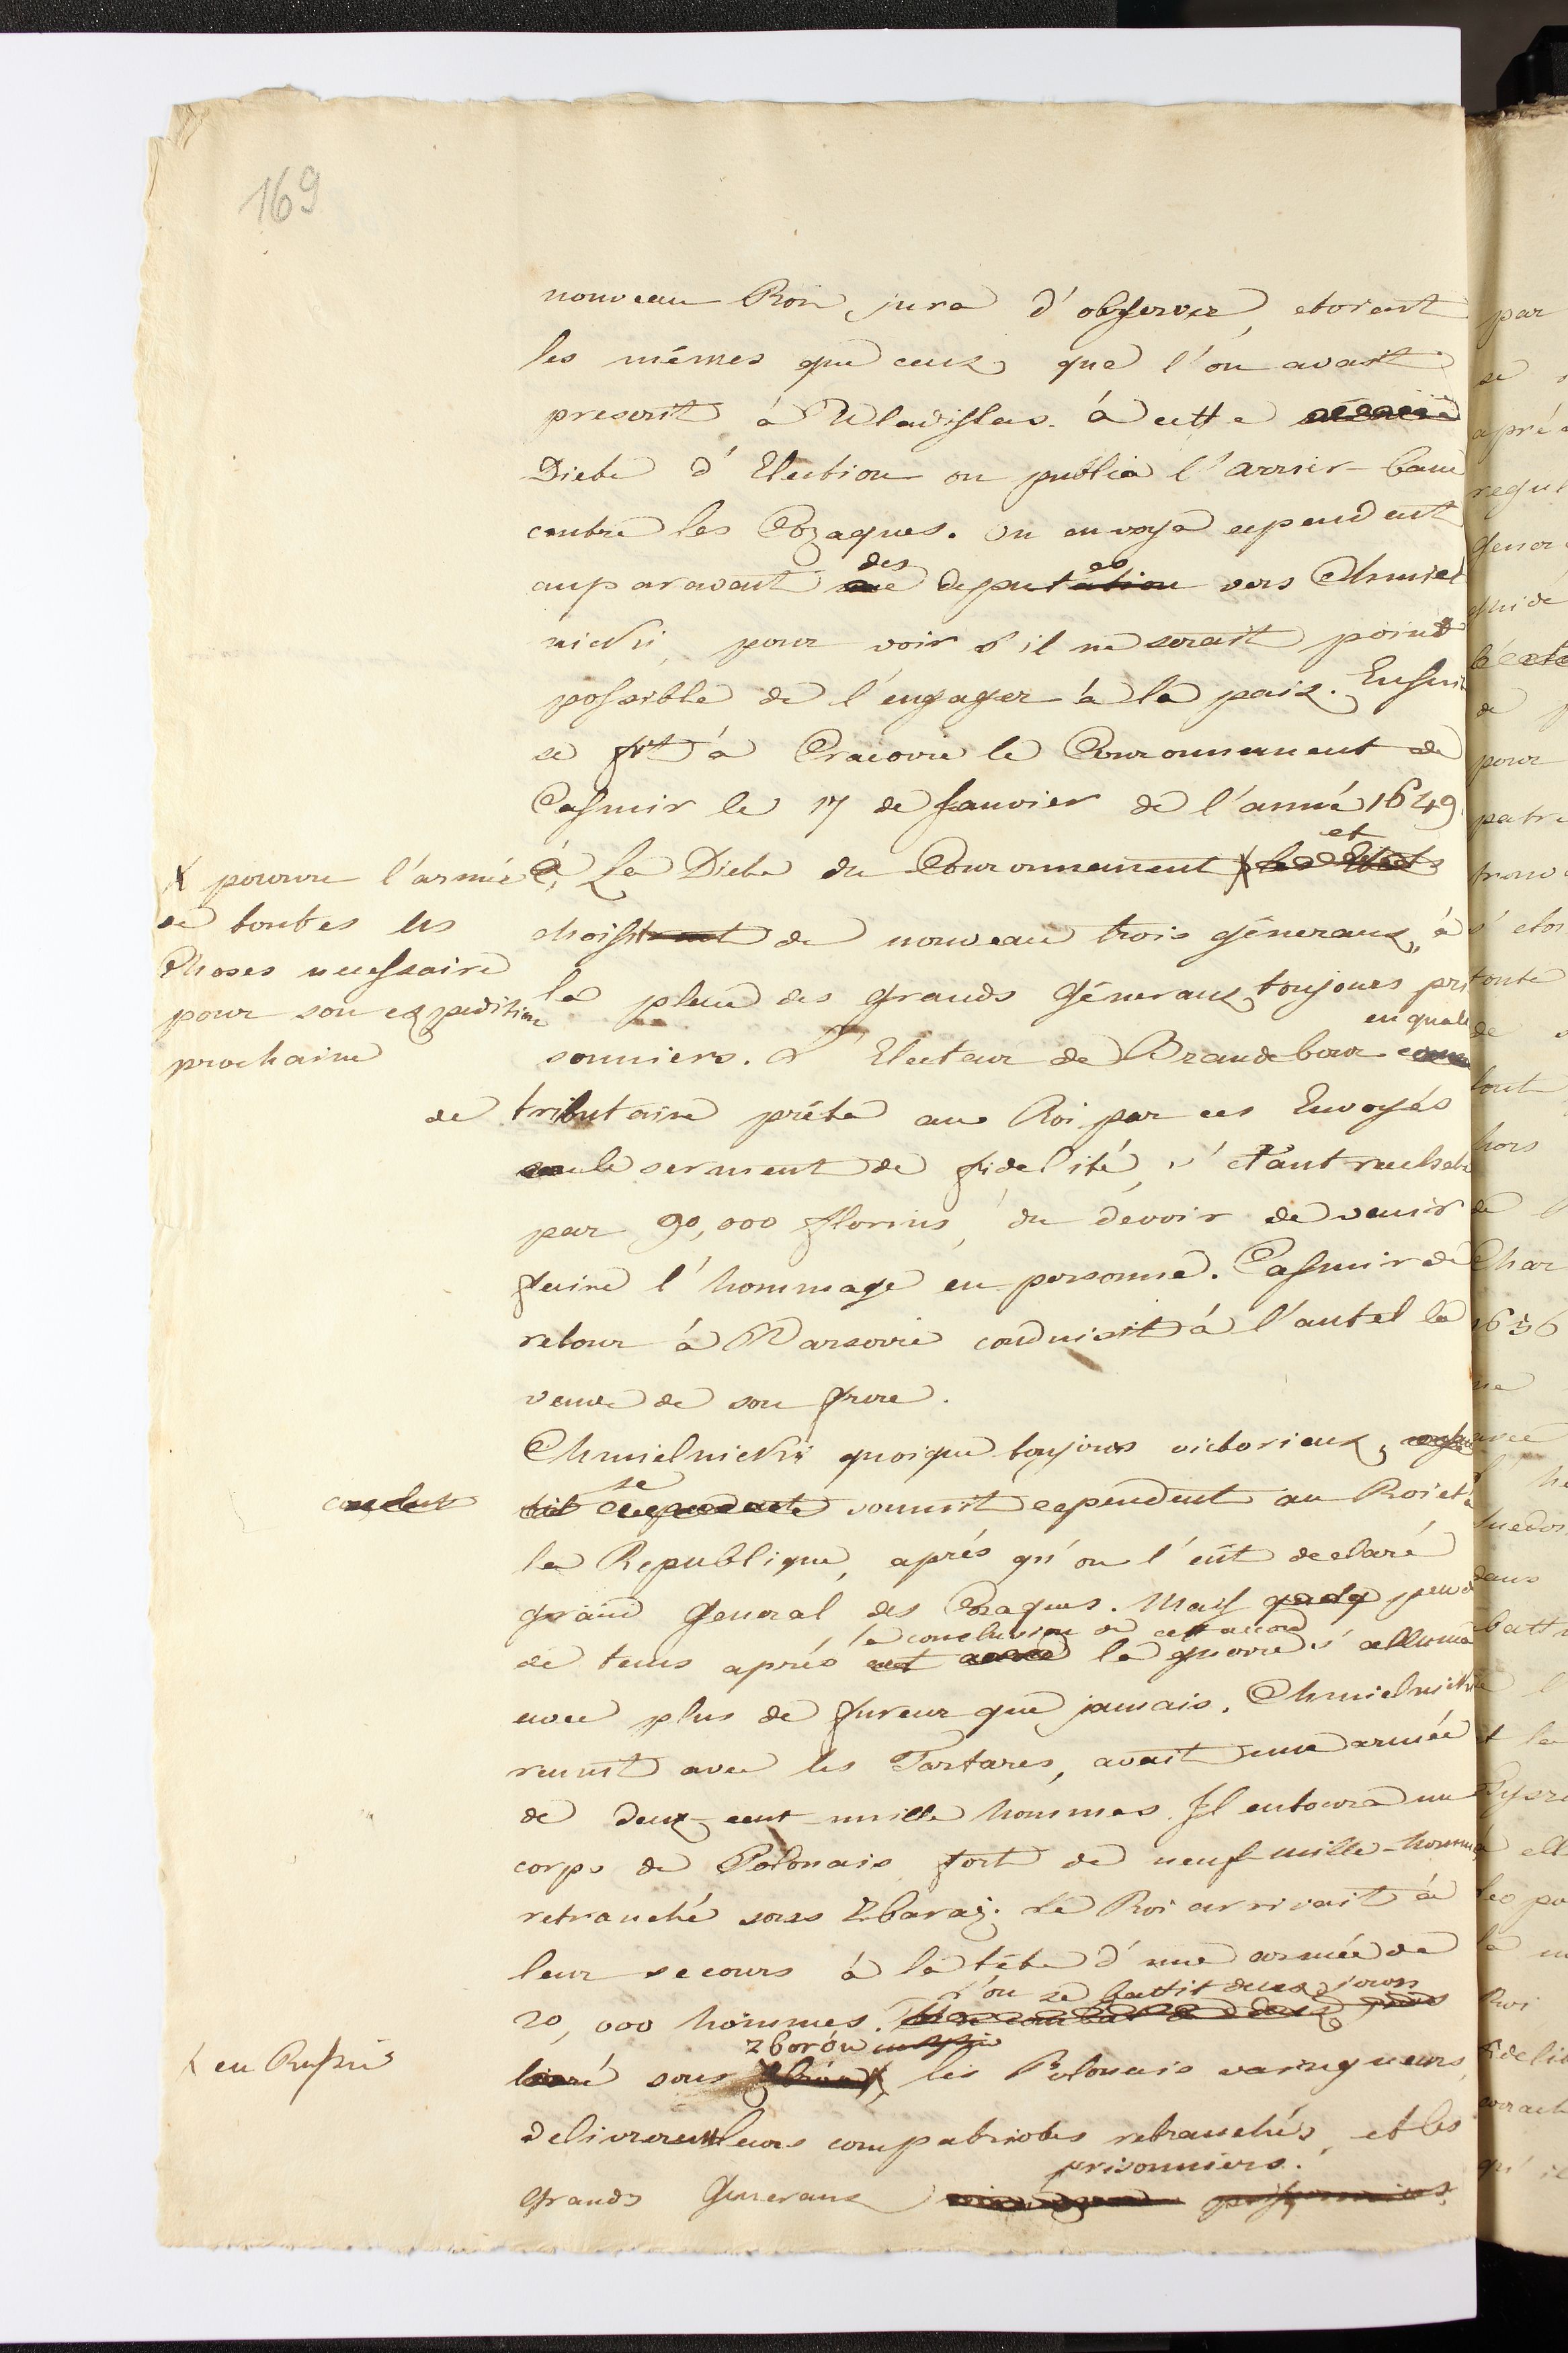 169
nouveau Roi jura d'observer, etoient
les mêmes que ceux que l'on avait
prescrit à Wladislas. à cette
Diete d'Election on publia l'arrier-ban
contre les Cozaques. On envoya cependent
des es
auparavant une deputation vers Chmiel
nicki, pour voir s'il ne serait point
possible de l'engager à la paix. Ensui
se fit à Cracovie le Couronnement de
Casmir le 17 de Janvier de l'année 1649.
et
à La Diete du Couronnement X les Etats
X pourvu l'armée
de toutes les
Choses necessaire
pour son expedition
prochaine
choisirent de nouveau trois géneraux, à
la place des grands Géneraux toujours pri
en quali
sonniers. L'Electeur de Brandebour comme
de tributaire prêta au Roi par ces Envoyés
le serment de fidelité, s'étant rachete
par 90,000 florins, du dévoir de venir
faire l'hommage en personne. Casmir de
retour à Warsovie conduisit à l'autel la
veuve de son frere.
Chmielnicki quoique toujours victorieux,
se
soumit cependent au Roi et à
la Republique, aprés qu'on l'eût declaré
grand General des Cozaques. Mais peu
la conclusion de cett accord
de tems aprés cet la guerre s'alluma
avec plus de fureur que jamais. Chmielnicki
reunit avec les Tartares, avait une armée
de deux-cent-mille hommes. Il entoura un
corps de Polonais fort de neuf-mille-homme
retranché sous Zbaraż. Le Roi arrivait à
leur secours à la tête d'une armée de
l'on se battit deux jours
20,000 hommes. Un combat de deux jours
Zborów
X en Russie
livré sous X, les Polonais vainqueurs,
delivrerent leurs compatriotes retranchés, et les
prisonniers.
grands Generaux prisonniers
par
se
apré
regul
gener
de
pour
patri
trouv
s'etoi
toute
de
tout
hors
de
Char
1656
ne
avec
Suedois
dans
batt
et la
elle
les po
la
Roi
fideli
arrach
qu'il